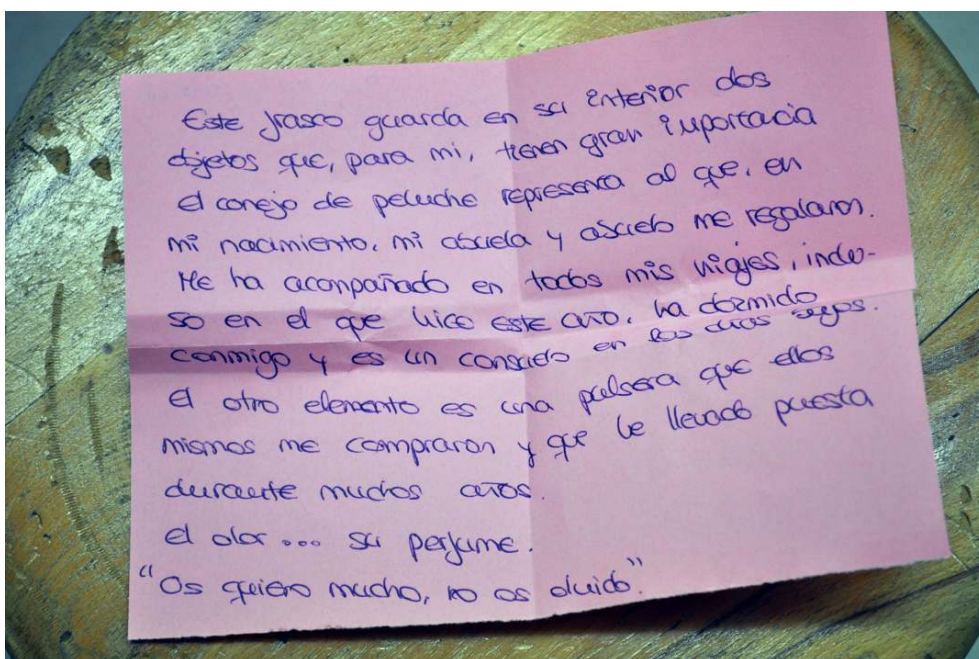 Este frasco guarda en su interior dos
objetos que, para mi, tienen gran importacia
el conejo de peluche representa al que, en
mi nacimiento, mi abuela y abuelo me regalaron.
Me ha acompañado en todos mis viajes, inclu-
so en el que hice este año, ha dormido
conmigo y es un consuelo en los días
el otro elemento es una pulsera que ellos
mismos me compraron y que he llevado puesta
durante muchos años.
el olor ... su perfume.
"Os quiero mucho, no os olvido."